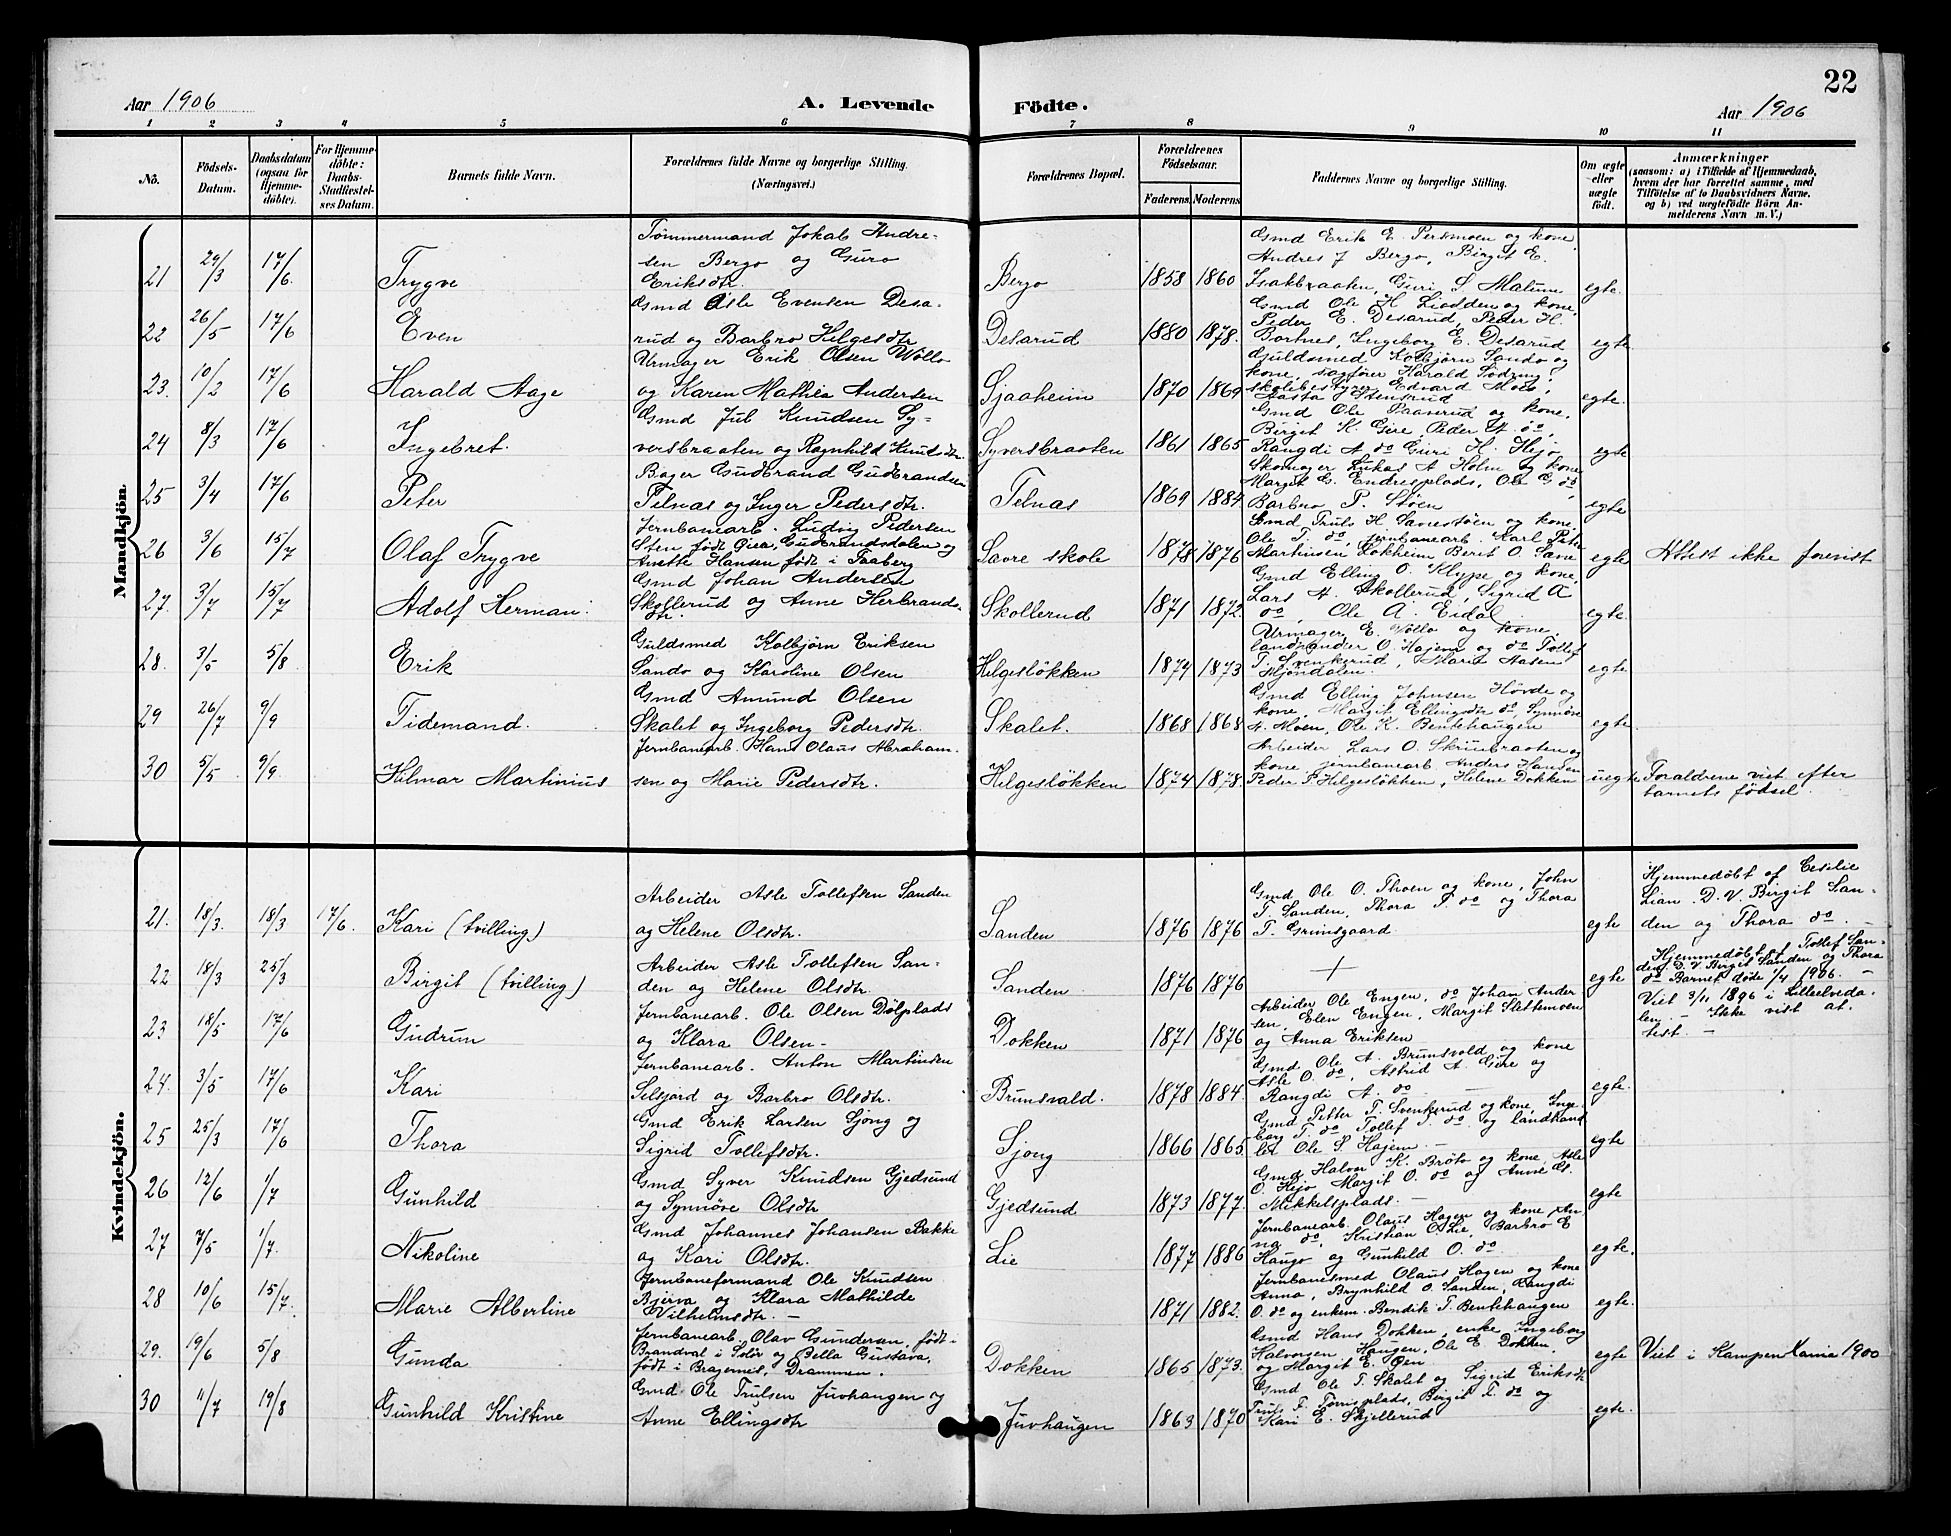 Aar 1906
A. Levende
Födte.
Aar 1906
22
1 2 3 4 5 6 7 8 9 10 11
No.
Födsels-Datum.
Daabsdatum (ogsaa for Hjemmedöbte).
For Hjemmedöbte: Daabs-Stadfæstelses Datum.
Barnets fulde Navn.
Forældrenes fulde Navne og borgerlige Stilling. (Næringsvei.)
Forældrenes Bopæl.
Forældrenes Födselsaar.
Faderens Moderens
Faddernes Navne og borgerlige Stilling.
Om ægte eller uægte födt.
Anmærkninger
(saasom: a) i Tilfælde af Hjemmedaab,
hvem der har forrettet samme, med
Tilföielse af to Daabsvidners Navne.
og b) ved uægtefödte Börn An-
melderens Navn m. V.)
Mandkjön
21 29/3 17/6 Trygve
Tömmermand Jokab Andre-
sen Bergo og Guro
Eriksdtr.
Bergo 1858 1860
Gmd Erik E. Persmoen og kone
Andres J Bergo, Birgit E.
Isakbraaten, Guri S Matum
egte
22 26/5 17/6 Even
Gmd Asle Evensen Desa-
rud og Barbro Helgesdtr
Desarud 1880 1878.
Gmd Ole H Liodden og kone,
Peder E. Desarud, Peder H.
Bortnes, Ingeborg E. Desarud
egte
23. 10/2 17/6 Harald Aage
Urmager Erik Olsen Wöllo
og Karen Mathea Andersen
Sjaaheim 1870 1869
Guldsmed Kolbjörn Sando og
kone, sagförer Harald Södring,
skolebestyrer Edvard Moes,
Aasta Stensrud
egte.
24 8/3 17/6 Ingebret.
Gmd Jul Knudsen Sy-
versbraaten og Ragnhild Knudsdtr.
Syversbraaten 1861 1865
Gmd Ole Paaverud og kone,
Birget K. Gire Peder A. do,
Rangdi A do Guri H. Hejo
egte
25 3/4 17/6 Peter
Bager Gudbrand Gudbrandsen
Telnas og Inger Pedersdtr.
Telnas 1869 1884
Skomager Lukas A Holm og kone
Margit G. Endresplads, Ole G do,
Barbro P. Stöen
egte
26 3/6 15/7 Olaf Trygve
Jernbanearb. Ludvig Pedersen
Sten födt Öier, Gudbrandsdalen og
Anette Hansen födt i Faaberg
Savre skole 1878 1876
Gmd Truls H. Savrestöen og kone
Ole T. do, jernbanearb. Karl Peter
Martinsen Lökheim Berit O. Save
egte Attest ikke forevist
27. 3/7 15/7 Adolf Herman
Gmd Johan Andersen
Skollerud og Anne Herbrands-
dtr.
Skollerud 1871 1872
Gmd Elling O. Klype og kone,
Lars A. Skollerud, Sigrid A
do, Ole A. Eidal
egte
28. 3/5 5/8 Erik
Guldsmed Kolbjörn Eriksen
Sando og Karoline Olsen
Helgeslökken 1874 1873
Urmager E. Wöllo og kone,
landhandler O. Hajem og do Tollef
T. Svenkerud, Marie Aasen
Mjöndalen.
egte
29 26/7 9/9 Tidemand.
Gmd Amund Olsen
Skalet og Ingeborg Pedersdtr.
Skalet. 1868 1868
Gmd Elling Johnsen Hövde og
kone, Margit Ellingsdtr do, Synnöve
A. Moen, Ole K. Bentehaugen
egte
30 5/5 9/9. Hilmar Martinius
Jernbanearb. Hans Olaus Abraham-
sen og Marie Pedersdtr.
Helgeslökken 1874 1878.
Arbeider Lars O. Skruebraaten og
kone jernbanearb Anders Hansen
Peder P. Helgeslökken, Helene Dokken
uegte Foraldrene viet efter
barnets födsel.
Kvindekjön.
21. 18/3. 18/3 17/6. Kari (tvilling)
Arbeider Asle Tollefsen Sanden
og Helene Olsdtr.
Sanden 1876 1876
Gmd Ole O. Thoen og kone, John
T. Sanden, Thora T. do og Thora
T. Grimsgaard
egte
Hjemmedöbt af Cesilie
Lian. D.V. Birgit San-
den og Thora do. —
22 18/3 25/3 Birgit (tvilling)
Arbeider Asle Tollefsen San-
den og Helene Olsdtr.
Sanden 1876 1876
+
egte
Hjemmedöbt af Tollef San-
den, D.V. Birgit Sanden og Thora
do Barnet döde 1/4 1906. —
23 18/5 17/6 Gudrun
Jernbanearb. Ole Olsen Dölplads
og Klara Olsen -
Dokken 1871 1876
Arbeider Ole Engen, do Johan Ander
sen, Elen Engen, Margit Slettemoen
og Anna Eriksen
Viet 3/11 1896 i Lilleelveda-
len. — Ikke vist at-
test —
24. 3/5 17/6 Kari
Jernbanearb. Anton Martinsen
Selsjord og Barbro Olsdtr.
Brunsvald. 1878 1884.
Gmd Ole A. Brunsvold og kone
Asle O. do, Astrid A. Gire og
Rangdi A. do —
egte.
25 25/3 17/6 Thora
Gmd Erik Larsen Sjong og
Sigrid Tollefsdtr.
Sjong 1866 1865
Gmd Petter T. Svenkerud og kone, Inge-
borg T. do Tollef T. do og landhand
ler Ole S. Hajem. —
egte
26 12/6 1/7 Gunhild
Gmd Syver Knudsen Gjedsund
og Synnöve Olsdtr
Gjedsund 1873 1877.
Gmd Halvor K. Bröto og kone, Asle
O. Hejo Margit O. do og Anne G.
Mikkelsplads. —
egte
27 7/5 1/7. Nikoline
Gmd Johannes Johansen Bakke
og Kari Olsdtr.
Lie 1877 1886
Jernbanearb. Olaus Hagen og kone An-
na do, Kristian O. Lie, Barbro E
Haugo og Gunhild O. do
egte.
28 10/6 15/7. Marie Albertine
Jernbaneformand Ole Knudsen
Bjerva og Klara Mathilde
Vilhelmsdtr. —
1871 1882.
Jernbanesmed Olaus Hagen og kone
Anna, Brynhild O. Sanden, Rangdi
O. do og enkem. Bendik T. Bentehaugen
egte.
29. 19/6 5/8 Gunda
Jernbanearb. Olav Gundersen, födt i
Brandval i Solör og Bella Gustava,
födt i Bragernes, Drammen.
Dokken 1865 1873.
Gmd Hans Dokken, enke Ingeborg
Halvorsen, Haugen, Ole E. Dokken,
og Margit E. Öen
egte Viet i Kampen Xania 1900
30 4/7 19/8 Gunhild Kristine
Gmd Ole Trulsen Juvhaugen og
Anne Ellingsdtr
Juvhaugen 1863 1870
Gmd Ole T. Skalet og Sigrid Eriksdtr
Truls T. Tönisplads, Birgit T. do og
Kari E. Skjellerud
egte.